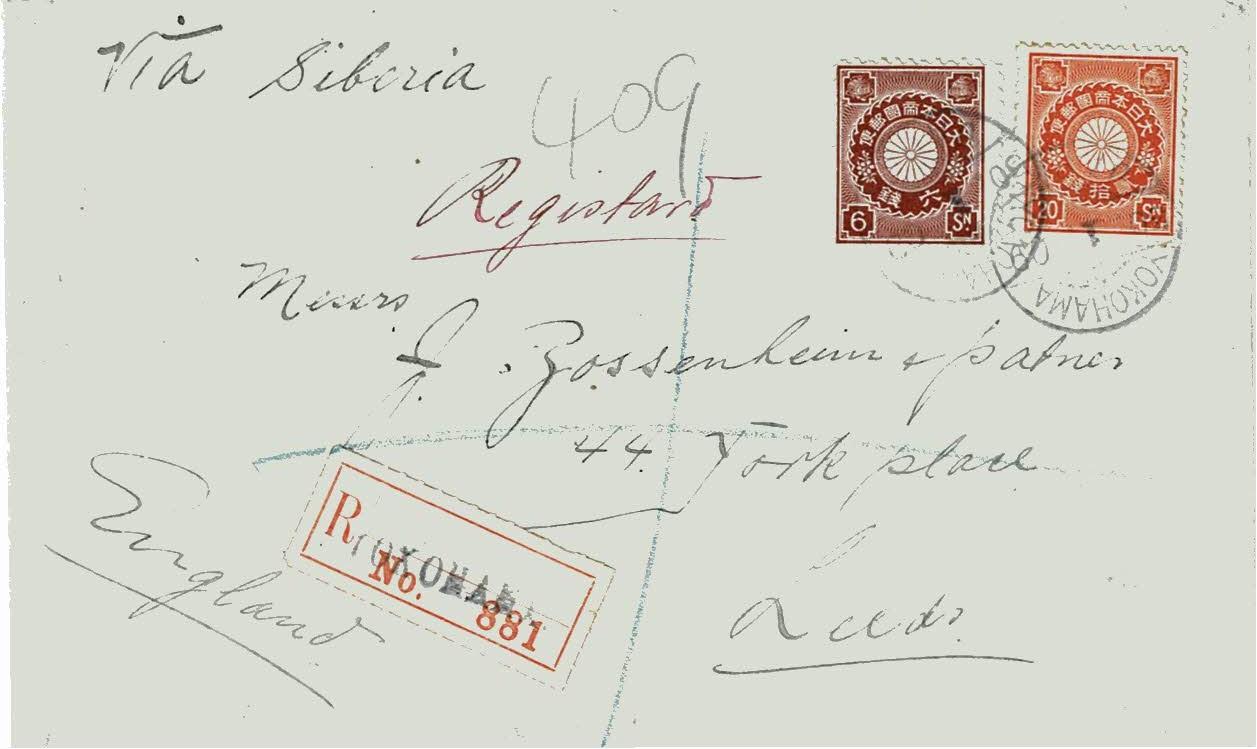 Via Siberia
409
Registard
Messrs
J. Zossenheim & patner
44 York place
Leeds
England
大日本帝國郵便
六錢
6 SN
大日本帝國郵便
貳拾錢
20 SN
YOKOHAMA
R YOKOHAMA
No. 881